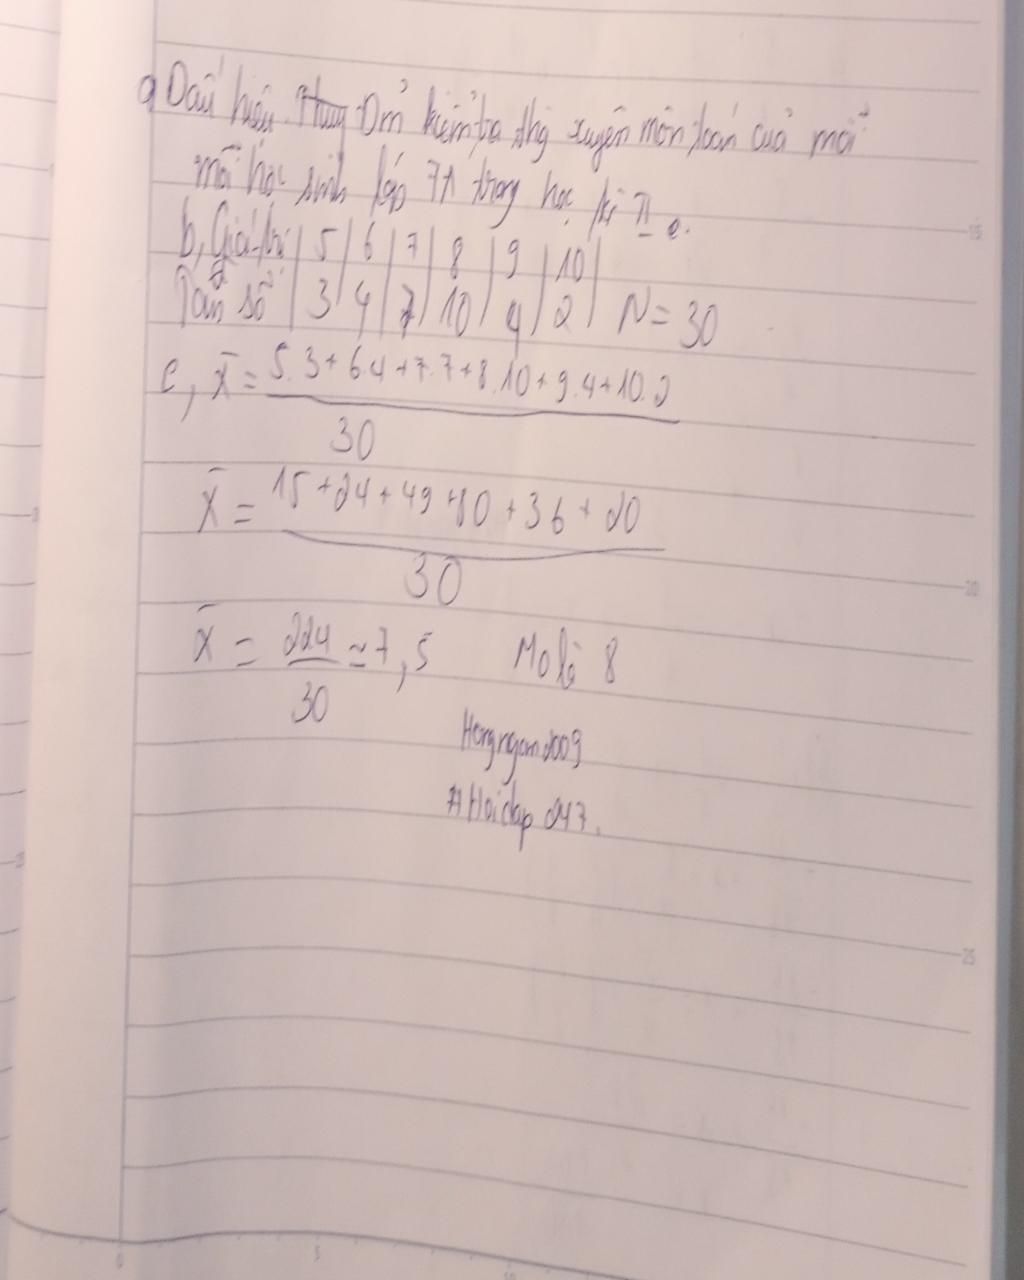 a Dấu hiệu. Đm kiểm tra thg xuyên môn toán của mỗi
mỗi học sinh lớp 7A trong học kì II
b, Giá trị | 5 | 6 | 7 | 8 | 9 | 10 |
Tần số | 3 | 4 | 7 | 10 | 4 | 2 | N = 30
c, X̄ = 5.3+6.4+7.7+8.10+9.4+10.2
30
X̄ = 15+24+49+80+36+20
30
X̄ = 224 ≃ 7,5 Mo là 8
30
Hongngam2009
#Hoidap 247.
15
20
25
0 5 10